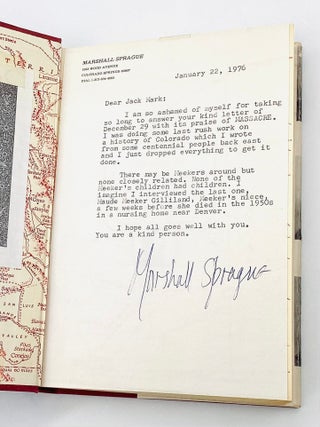 MARSHALL SPRAGUE
COLORADO SPRINGS
January 22, 1976
Dear Jack Mark:
I am so ashamed of myself for taking
so long to answer your kind letter of
December 29 with its praise of MASSACRE.
I was doing some last rush work on
a history of Colorado which I wrote
from some centennial people back east
and I just dropped everything to get it
done.
There may be Meekers around but
none closely related. None of the
Meeker's children had children. I
imagine I interviewed the last one,
Maude Meeker Gilliland, Meeker's niece,
a few weeks before she died in the 1950s
in a nursing home near Denver.
I hope all goes well with you.
You are a kind person.
Marshall Sprague